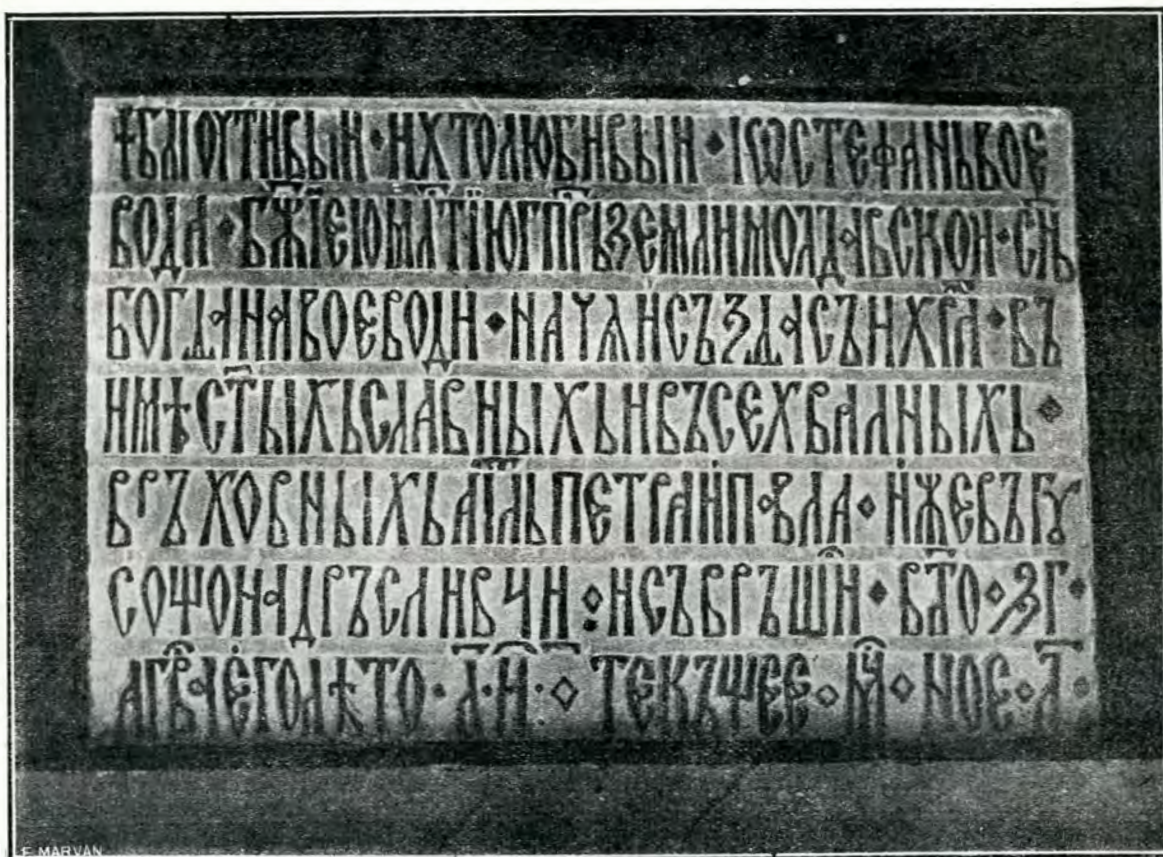 † БЛ҃ГОУТИВЫИ · И Х҃ТОЛЮБИВЫИ · ІѠ СТЕФАНЬ ВОЕ
ВОДА · Б҃ЖІЕЮ МЛ҃ТІЮ Г҃ПРЪ ЗЕМЛИ МОЛДАВСКОИ · С҃НЬ
БОГДАНА ВОЕВОДИ · НАЧѦ И СЪЗДА СЪИ ХРА҃ · ВЪ
ИМѢ С҃ТЫХЬ СЛАВНЫХЬ И ВЪСЕХВАЛНЫХЬ ·
ВРЪХОВНЫХЬ АП҃ЛЬ ПЕТРА И ПАВЛА · ИЖЕ ВЪ ГꙊ
СОЩО НА ДРЪСЛИВЧИ : И СЪВРЪШИ҃ · В Л҃ТО · ЗГ ·
А Г҃ВА ЕГО ЛѢТО · Л҃ · И҃ · ТЕКꙊЩЕЕ · М҃Ц · НОЕ · Л҃ ·
E. MARVAN